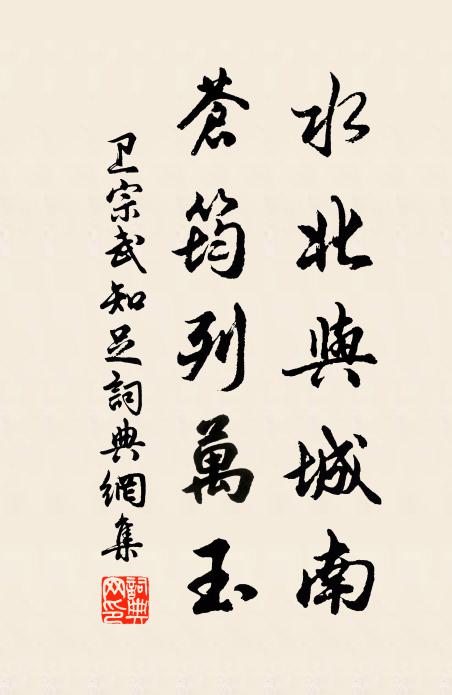 水北與城南
蒼筠列萬玉
卫宗武知足詞典網集
詞典網印